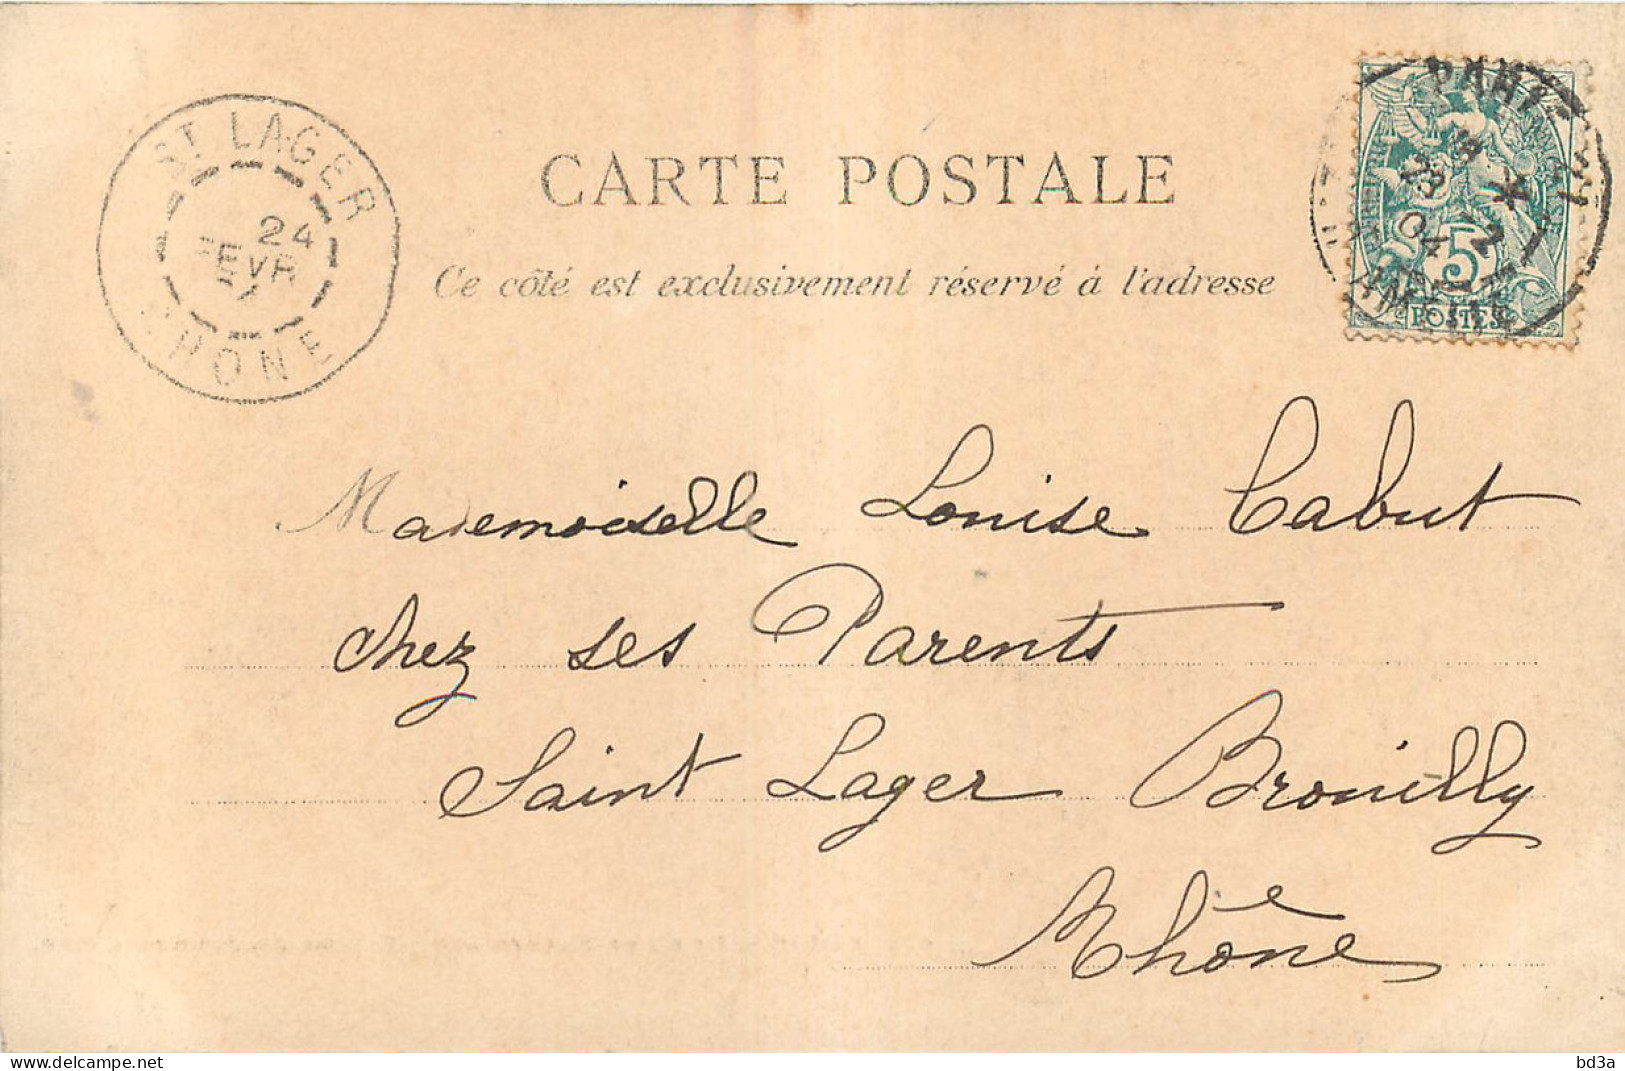 CARTE POSTALE
Ce côté est exclusivement réservé à l'adresse
ST LAGER
24
FEVR
RHONE
5
POSTES
Mademoiselle Louise Cabut
chez ses Parents
Saint Lager Brouilly
Rhône
delcampe.net
bd3a